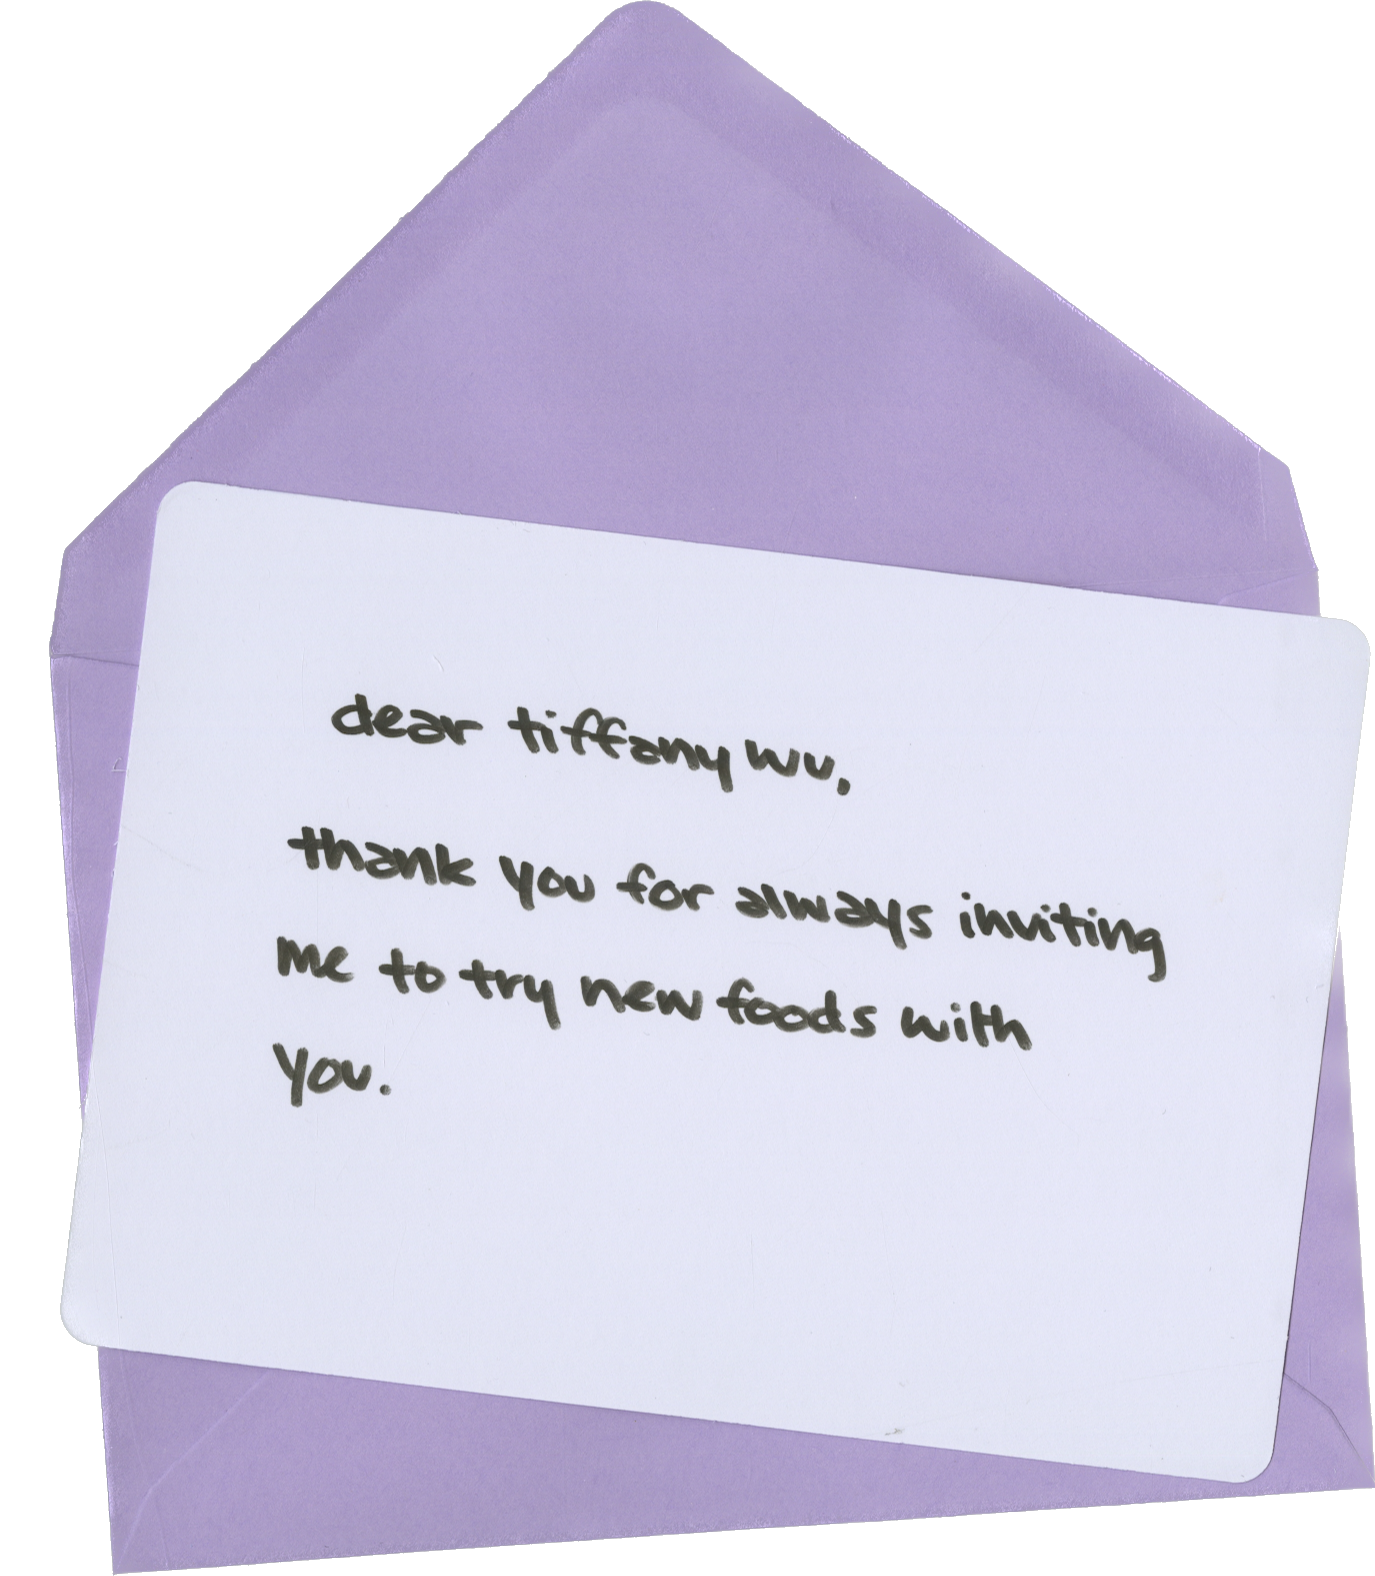 dear tiffany wu,
thank you for always inviting
me to try new foods with
you.